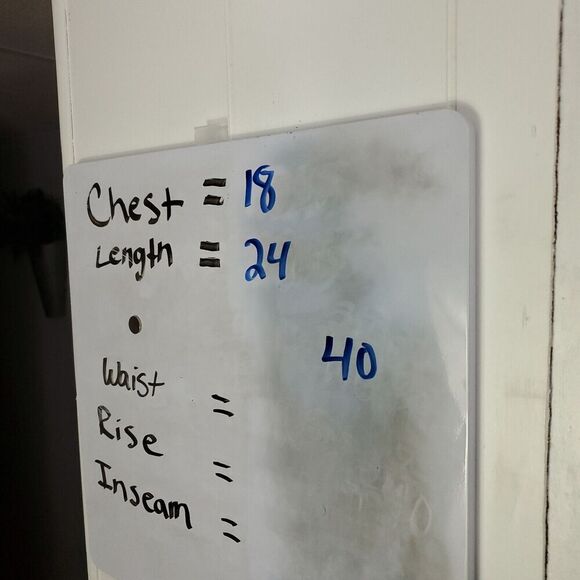 Chest = 18
Length = 24
40
Waist =
Rise =
Inseam =